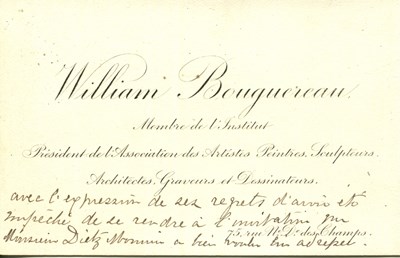 William Bouguereau.
Membre de l'Institut
Président de l'Association des Artistes Peintres, Sculpteurs,
Architectes, Graveurs et Dessinateurs.
avec l'expression de ses regrets d'avoir été
empêché de se rendre à l'invitation que
75, rue N. D. des Champs.
Monsieur Dietz Monnin a bien voulu lui adresser.